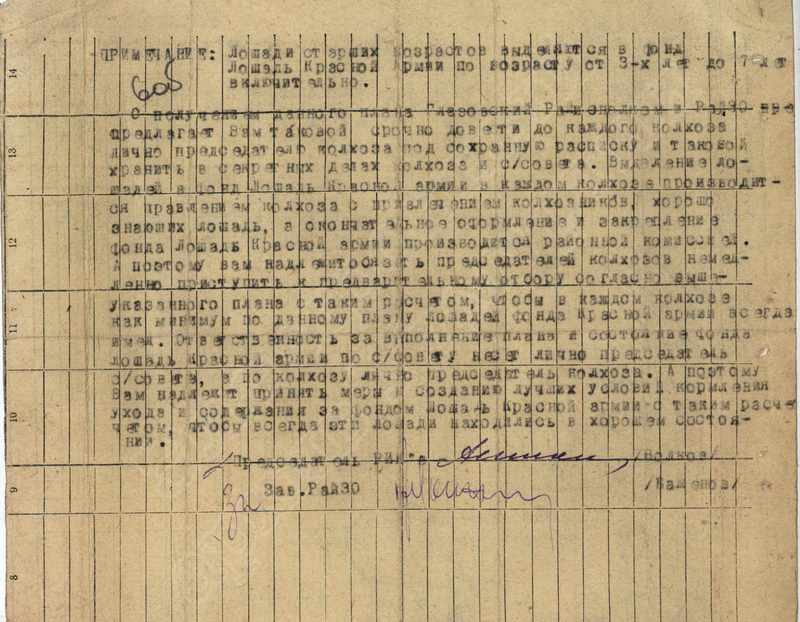 ПРИМЕЧАНИЕ: Лошади старших возрастов выделяются в фонд
Лошадь Красной Армии по возрасту от 3-х лет до 7 лет
включительно.
С получением данного плана Глазовский Райисполком и РайЗО
предлагает Вам таковой срочно довести до каждого колхоза
лично председателю колхоза под сохранную расписку и таковой
хранить в секретных делах колхоза и с/совета. Выделение ло-
шадей в фонд Лошадь Красной армии в каждом колхозе производит-
ся правлением колхоза с привлечением колхозников, хорошо
знающих лошадь, а окончательное оформление и закрепление
фонда Лошадь Красной армии производится районной комиссией.
А поэтому вам надлежит председателей колхозов немед-
ленно приступить к предварительному отбору согласно выше-
указанного плана с таким расчетом, чтобы в каждом колхозе
как минимум по данному плану лошадей фонда Красной армии всегда
имел. Ответственность за выполнение плана и состояние фонда
лошадь Красной армии по с/совету несет лично председатель
с/совета, а по колхозу лично председатель колхоза. А поэтому
Вам надлежит принять меры к созданию лучших условий кормления
ухода и содержания за фондом Лошадь Красной армии с таким расче
четом, чтобы всегда эти лошади находились в хорошем состоя-
нии.
Председатель РИК"а /Волков/
Зав.РайЗО /Баженов/
14
13
12
11
10
9
8